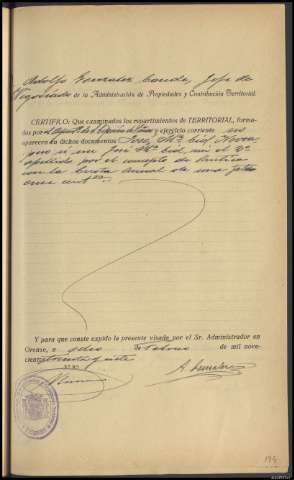 Adolfo Gonzalez Conde, Jefe de
Negociado de la Administración de Propiedades y Contribución Territorial.
CERTIFICO: Que examinados los repartimientos de TERRITORIAL, forma-
dos por el y ejercicio corriente no
aparece en dichos documentos José Mª Cid
pero si un José Mª Cid, sin el 2º
apellido por el concepto de rústica
con la cuota anual de una peseta
once cent.os
Y para que conste expido la presente visada por el Sr. Administrador en
Orense, a ocho de Febrero de mil nove-
cientos treinta y siete
Vº Bº
A. Gonzalez